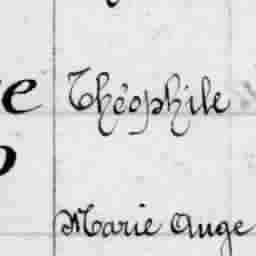 Théophile
Marie Ange